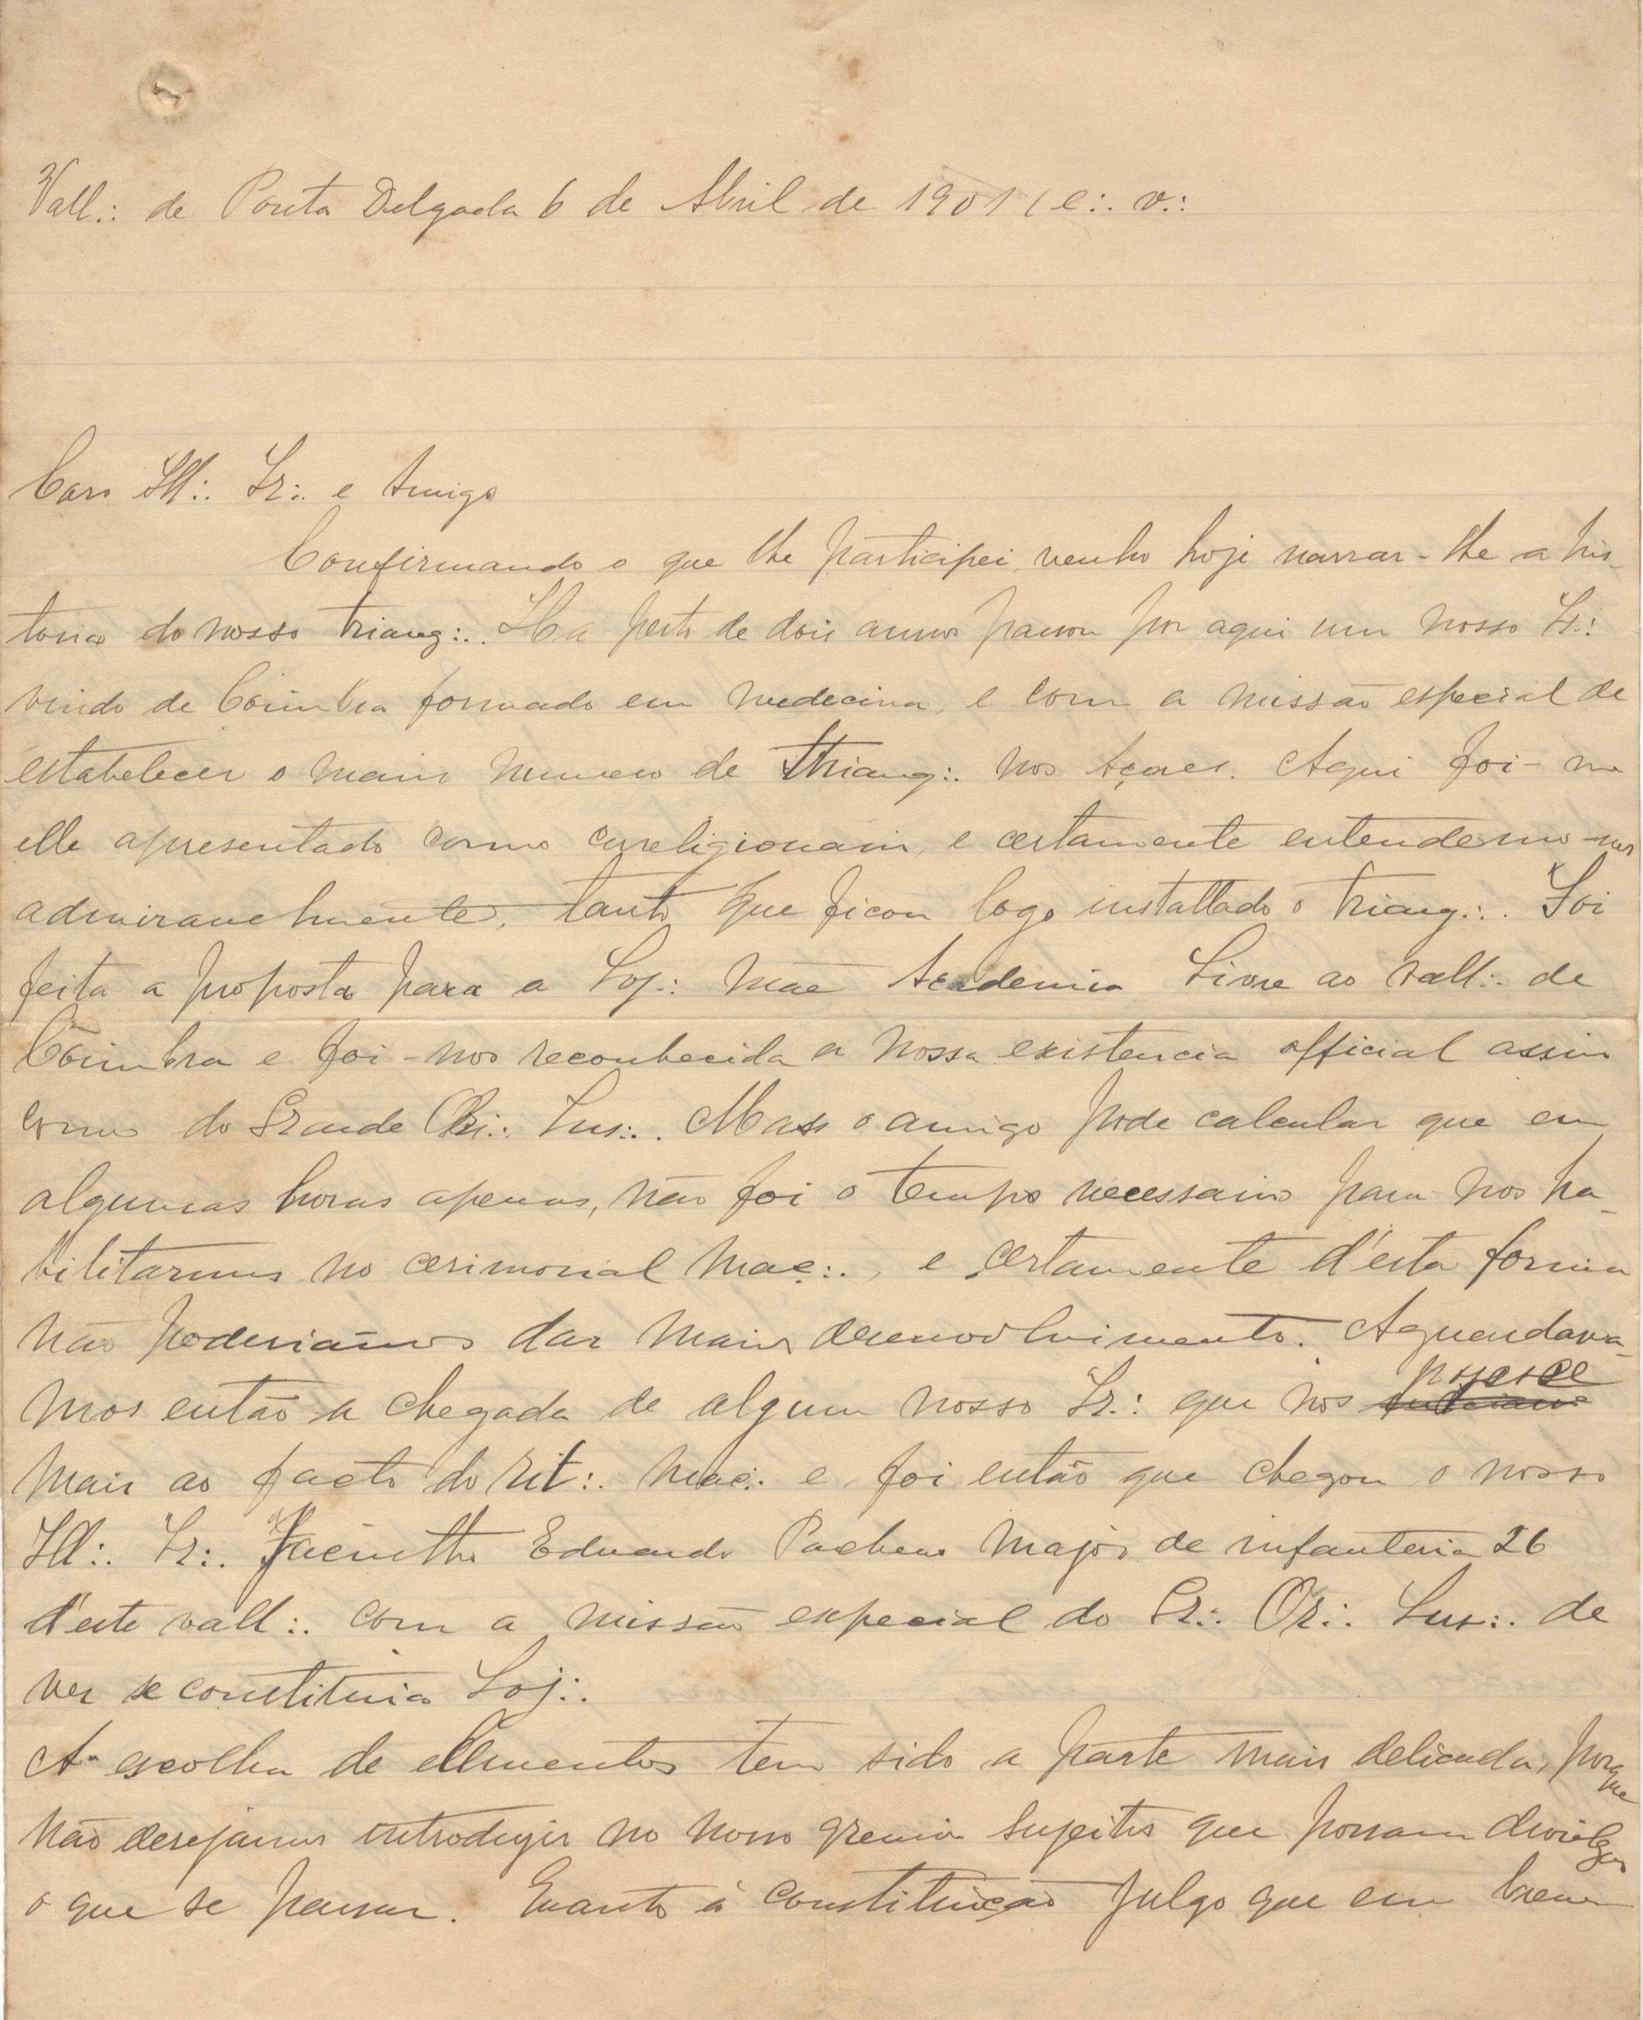 Vall∴ de Ponta Delgada 6 de Abril de 1901 (e∴ v∴
Caro Ill∴ Ir∴ e Amigo
Confirmando o que lhe participei venho hoje narrar-lhe a his-
toria do nosso triang∴. Ha perto de dois annos passou por aqui um nosso Ir∴
vindo de Coimbra formado em medecina, e com a missão especial de
estabelecer o maior numero de triang∴ nos Açores. Aqui foi-me
elle apresentado como correligionario, e certamente entendemo-nos
admiravelmente, tanto que ficou logo installado o triang∴. Foi
feita a proposta para a Loj∴ Mãe Academia Livre ao vall∴ de
Coimbra e foi-nos reconhecida a nossa existencia official assim
como do Grande Ori∴ Lus∴. Mas o amigo pode calcular que em
algumas horas apenas, não foi o tempo necessario para nos ha-
bilitarmos no cerimonial maç∴, e certamente d'esta forma
não poderiamos dar maior desenvolvimento. Aguardava-
mos então a chegada de algum nosso Ir∴ que nos pozesse
mais ao facto do rit∴ maç∴ e foi então que chegou o nosso
Ill∴ Ir∴ Jacintho Eduardo Pacheco major de infanteria 26
d'este vall∴ com a missão especial do Gr∴ Or∴ Lus∴ de
ver se constituia Loj∴.
A escolha de ellementos tem sido a parte mais delicada, porque
não desejamos introduzir no nosso gremio sugeitos que possam divulgar
o que se passar. Quanto á constituição julgo que em breve